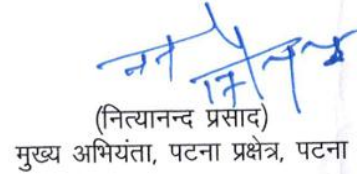 (नित्यानन्द प्रसाद)
मुख्य अभियंता, पटना प्रक्षेत्र, पटना